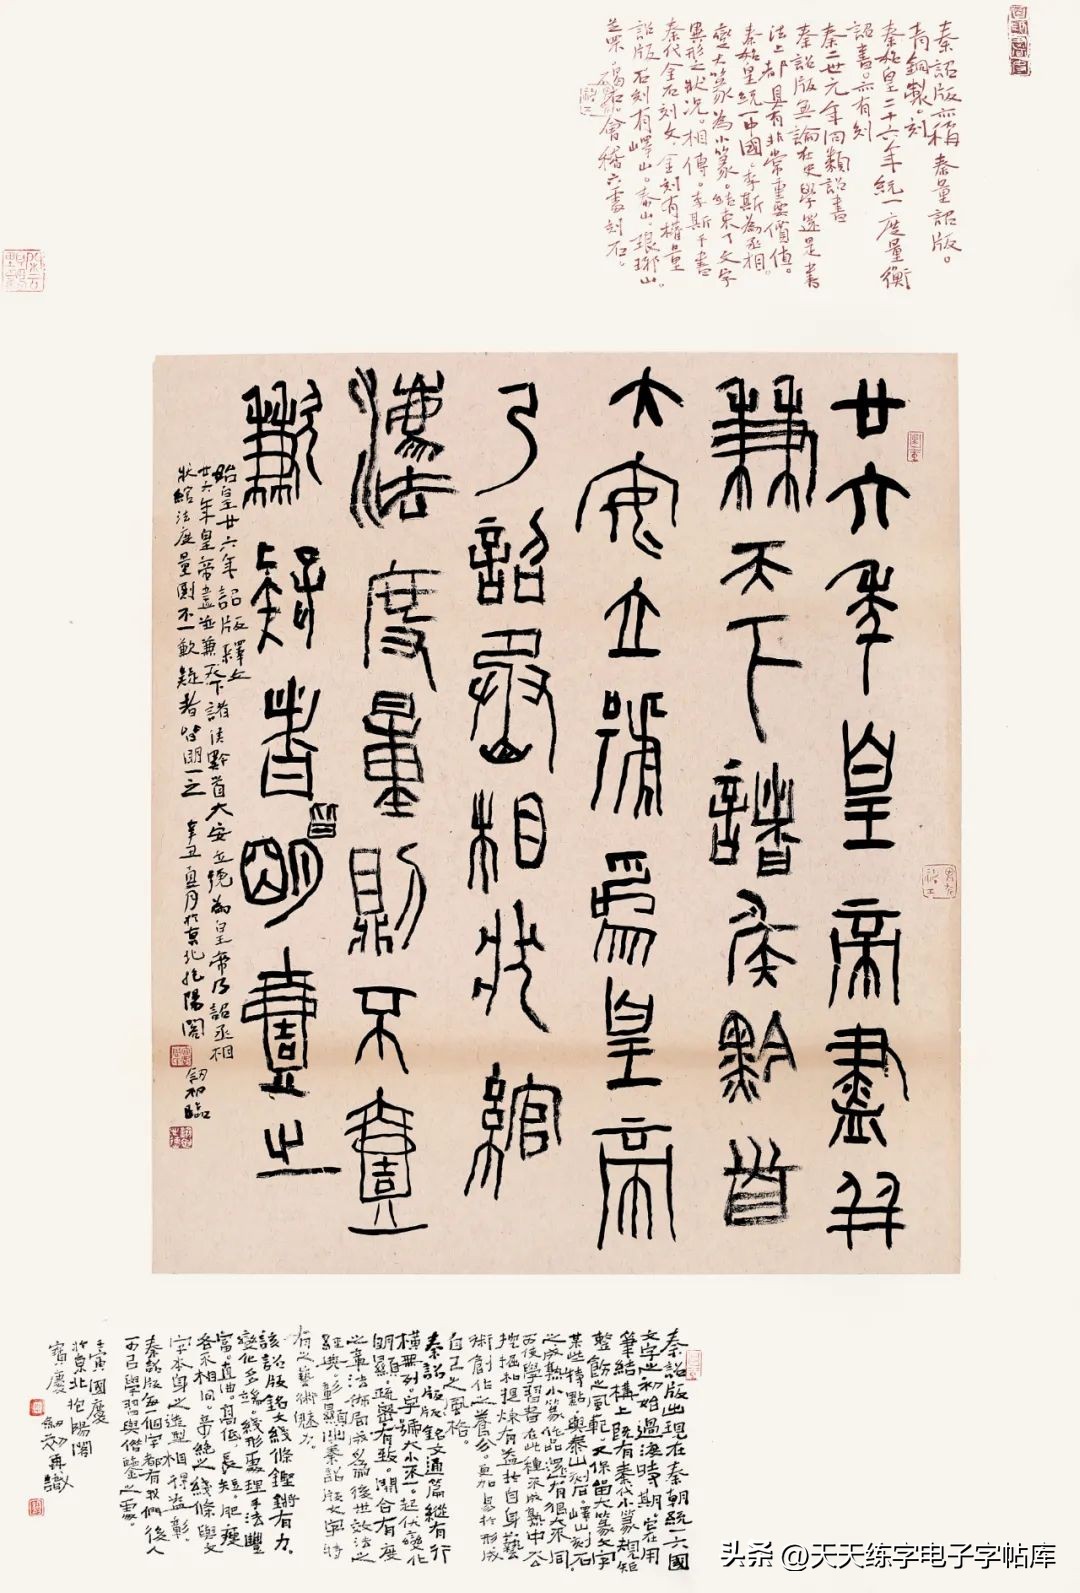 秦詔版亦稱秦量詔版。
青銅製。刻
秦始皇二十六年統一度量衡
詔書。亦有刻
秦二世元年同類詔書
秦詔版無論在史學還是書
法上都具有非常重要價值。
秦始皇統一中國。李斯為丞相。
變大篆為小篆。結束了文字
異形之狀況。相傳。李斯手書
秦代金石刻文。金刻有權量
詔版。石刻有嶧山。泰山。琅琊山。
芝罘。碣石。會稽六處刻石。
廿六年皇帝盡并
兼天下諸侯黔首
大安立號為皇帝
乃詔丞相狀綰
灋法度量則不壹
歉疑者皆明壹之
始皇廿六年詔版釋文
廿六年皇帝盡並兼天下諸侯黔首大安立號為皇帝乃詔丞相
狀綰法度量則不一歉疑者皆明一之 辛丑夏月於京北抱陽閣 劍初臨
秦詔版出現在秦朝統一六國
文字之初始過渡時期。它在用
筆結構上既有秦代小篆規矩
整飭之風範。又保留大篆文字
某些特點。與泰山刻石。嶧山刻石
之成熟小篆作品還有很大不同。
而後學習者在此種不成熟中去
挖掘和提煉有益於自身藝
術創作之養分。更加易於形成
自己之風格。
秦詔版版銘文通篇縱有行
橫無列。字號大小不一。起伏變化
明顯。疏密有致。開合有度
之章法佈局成為後世效法之
經典。彰顯出秦詔版文字特
有之藝術魅力。
該詔版銘文線條鏗鏘有力。
變化多端。線形處理手法豐
富。直曲。高低。長短。肥瘦
各不相同。奇絕之線條與文
字本身之造型相得益彰。
秦詔版每一個字都有我們後人
可已學習與借鑒之處。
壬寅國慶
於京北抱陽閣
寶慶 劍初再識
头条 @天天练字电子字帖库